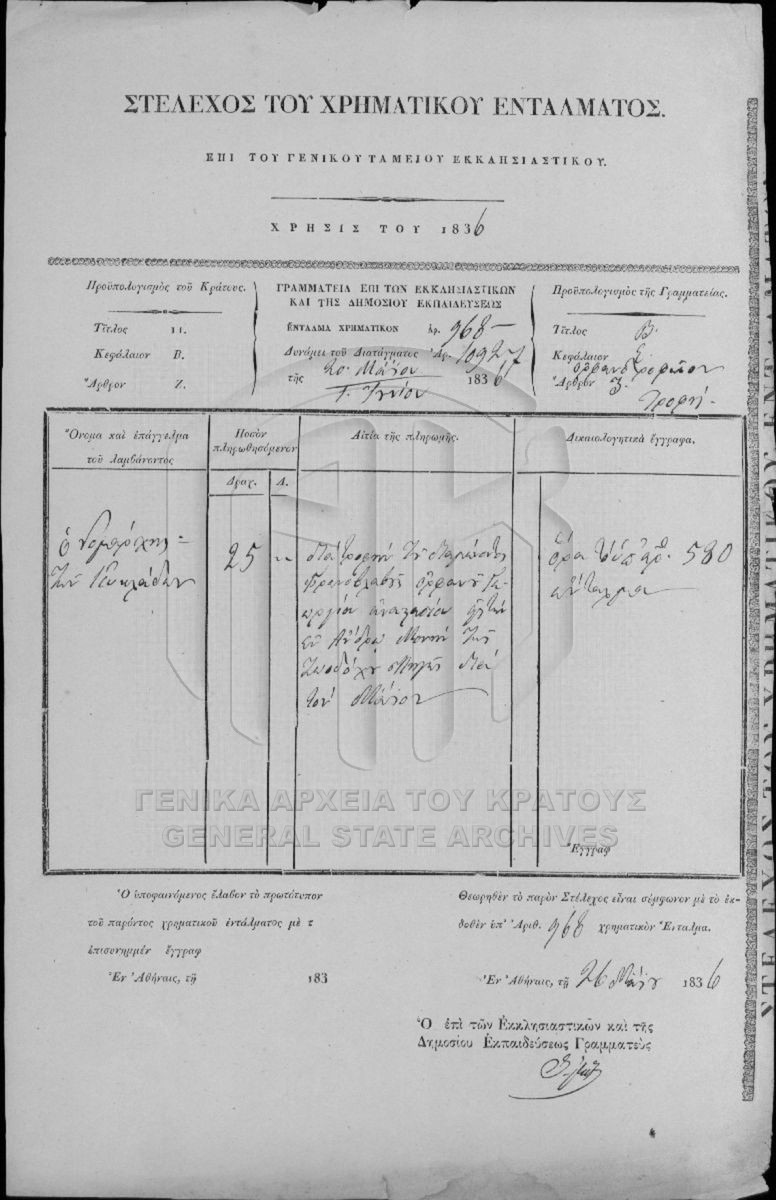 ΣΤΕΛΕΧΟΣ ΤΟΥ ΧΡΗΜΑΤΙΚΟΥ ΕΝΤΑΛΜΑΤΟΣ.
ΕΠΙ ΤΟΥ ΓΕΝΙΚΟΥ ΤΑΜΕΙΟΥ ΕΚΚΛΗΣΙΑΣΤΙΚΟΥ.
ΧΡΗΣΙΣ ΤΟΥ 1836
Προϋπολογισμὸς τοῦ Κράτους.
Τίτλος 11.
Κεφάλαιον Β.
Ἄρθρον Ζ.
ΓΡΑΜΜΑΤΕΙΑ ΕΠΙ ΤΩΝ ΕΚΚΛΗΣΙΑΣΤΙΚΩΝ
ΚΑΙ ΤΗΣ ΔΗΜΟΣΙΟΥ ΕΚΠΑΙΔΕΥΣΕΩΣ
ΕΝΤΑΛΜΑ ΧΡΗΜΑΤΙΚΟΝ ἀρ. 968
Δυνάμει τοῦ Διατάγματος Ἀρ. 10927
20 Μαΐου
τῆς 1836
1 Ἰουνίου
Προϋπολογισμὸς τῆς Γραμματείας.
Τίτλος Β.
Κεφάλαιον
ὀρφανοτροφεῖον
Ἄρθρον 3.
Τροφή
Ὄνομα καὶ ἐπάγγελμα
τοῦ λαμβάνοντος
Ποσὸν
πληρωθησόμενον
Δραχ. Λ.
Αἰτία τῆς πληρωμῆς.
Δικαιολογητικὰ ἔγγραφα.
ὁ Νομάρχης
τῶν Κυκλάδων
25 "
διὰ τροφὴν τοῦ
φρενοβλαβοῦς ὀρφανοῦ Γε
ωργίου
Ἄνδρῳ Μονὴν τῆς
Ζωοδόχου Πηγῆς διὰ
τὸν Μάϊον
ὅρα ὑπ' ἀρ. 580
ἔνταλμα
Ἔγγραφ
ΓΕΝΙΚΑ ΑΡΧΕΙΑ ΤΟΥ ΚΡΑΤΟΥΣ
GENERAL STATE ARCHIVES
Ὁ ὑποφαινόμενος ἔλαβον τὸ πρωτότυπον
τοῦ παρόντος χρηματικοῦ ἐντάλματος μὲ τ
ἐπισυνημμέν ἔγγραφ
Ἐν Ἀθήναις, τῇ 183
Θεωρηθὲν τὸ παρὸν Στέλεχος εἶναι σύμφωνον μὲ τὸ ἐκ-
δοθὲν ὑπ' Ἀριθ. 968 χρηματικὸν Ἔνταλμα.
Ἐν Ἀθήναις, τῇ 26 Μαΐου 1836
Ὁ ἐπὶ τῶν Ἐκκλησιαστικῶν καὶ τῆς
Δημοσίου Ἐκπαιδεύσεως Γραμματεὺς